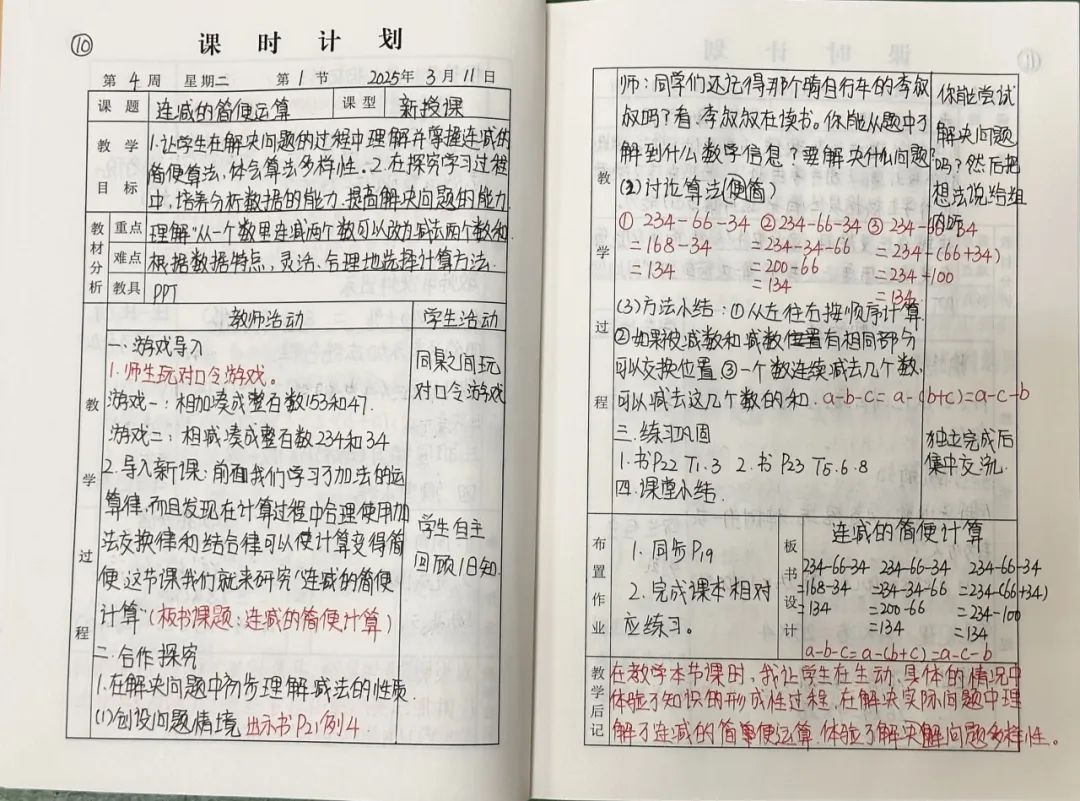 ⑩ 课时计划
第 4 周 星期二 第 1 节 2025年 3月 11日
课题 连减的简便运算 课型 新授课
教学目标
1.让学生在解决问题的过程中理解并掌握连减的
简便算法,体会算法多样性.2.在探究学习过程
中,培养分析数据的能力.提高解决问题的能力
教材分析
重点 理解"从一个数里连减两个数可以改为减去两个数和.
难点 根据数据特点,灵活、合理地选择计算方法.
教具 PPT
教学过程
教师活动 学生活动
一、游戏导入
1.师生玩对口令游戏。
游戏一:相加凑成整百数153和47.
游戏二:相减凑成整百数234和34
2.导入新课:前面我们学习了加法的运
算律,而且发现在计算过程中合理使用加
法交换律和结合律可以使计算变得简
便.这节课我们就来研究"连减的简便
计算"(板书课题:连减的简便计算)
二.合作探究
1.在解决问题中初步理解减法的性质
(1)创设问题情境 出示书P21例4
同桌之间玩
对口令游戏
学生自主
回顾旧知
11
教学过程
师:同学们还记得那个骑自行车的李叔
叔吗?看,李叔叔在读书。你能从题中了
解到什么数学信息?要解决什么问题?
(2)讨论算法(便简)
① 234-66-34 ② 234-66-34 ③ 234-66-34
=168-34 =234-34-66 =234-(66+34)
=134 =200-66 =234-100
=134 =134
(3)方法小结:①从左往右按顺序计算.
②如果被减数和减数位置有相同部分
可以交换位置③一个数连续减去几个数,
可以减去这几个数的和.a-b-c=a-(b+c)=a-c-b
三.练习巩固
1.书P22 T1.3 2.书P23 T5.6.8
四.课堂小结.
你能尝试
解决问题
吗?然后把
想法说给组
内听
独立完成后
集中交流.
布置作业
1.同步P19
2.完成课本相对
应练习。
板书设计
连减的简便计算
234-66-34 234-66-34 234-66-34
=168-34 =234-34-66 =234-(66+34)
=134 =200-66 =234-100
=134 =134
a-b-c=a-(b+c)=a-c-b
教学后记
在教学本节课时,我让学生在生动、具体的情况中
体验了知识的形成性过程,在解决实际问题中理
解了连减的简单便运算.体验了解决解问题多样性。